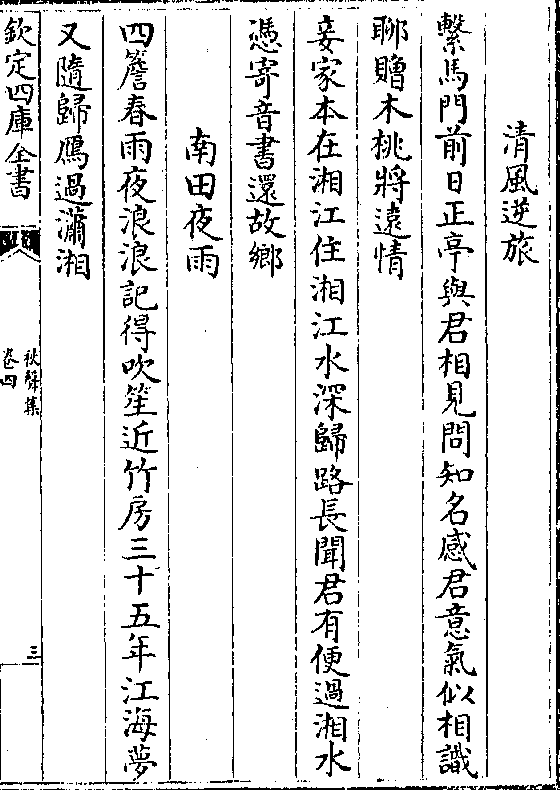 清風逆旅
繫馬門前日正亭與君相見問知名感君意氣似相識
聊贈木桃將遠情
妾家本在湘江住湘江水深歸路長聞君有便過湘水
憑寄音書還故鄉
南田夜雨
四簷春雨夜浪浪記得吹笙近竹房三十五年江海夢
又隨歸鴈過瀟湘
欽定四庫全書
秋聲集
卷四
三